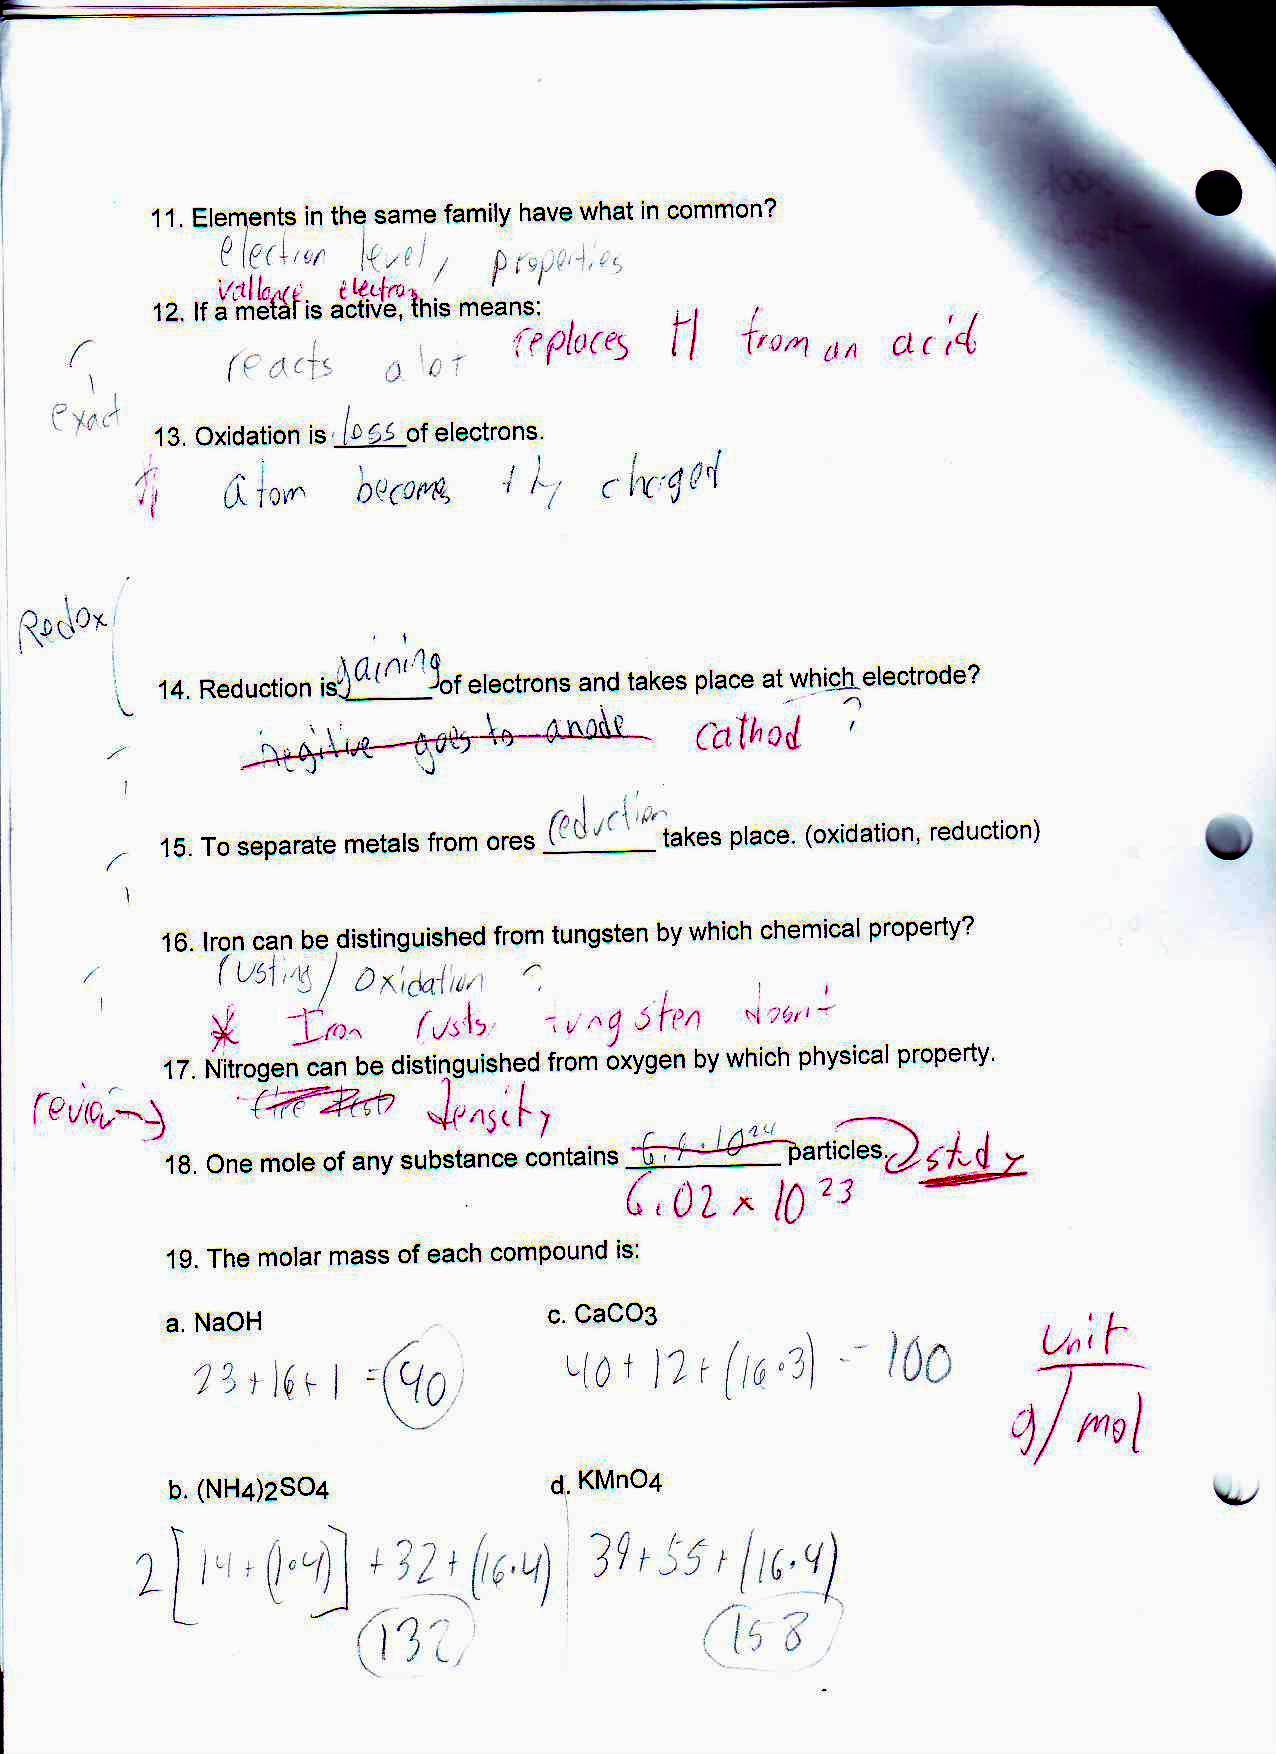 11. Elements in the same family have what in common?
electron level, properties
vallence electron
12. If a metal is active, this means:
reacts a lot replaces H from an acid
exact
13. Oxidation is loss of electrons.
atom becomes +ly charged
Redox
14. Reduction is gaining of electrons and takes place at which electrode?
negitive goes to anode cathod ?
15. To separate metals from ores reduction takes place. (oxidation, reduction)
16. Iron can be distinguished from tungsten by which chemical property?
rusting/oxidation ?
* Iron rusts tungsten doesn't
17. Nitrogen can be distinguished from oxygen by which physical property.
fire test density
18. One mole of any substance contains particles. study
6.02 x 10²³
19. The molar mass of each compound is:
a. NaOH c. CaCO3
23+16+1 = 40 40+12+(16·3) = 100
unit
g/mol
b. (NH4)2SO4 d. KMnO4
2[14+(1·4)]+32+(16·4) 39+55+(16·4)
132 158